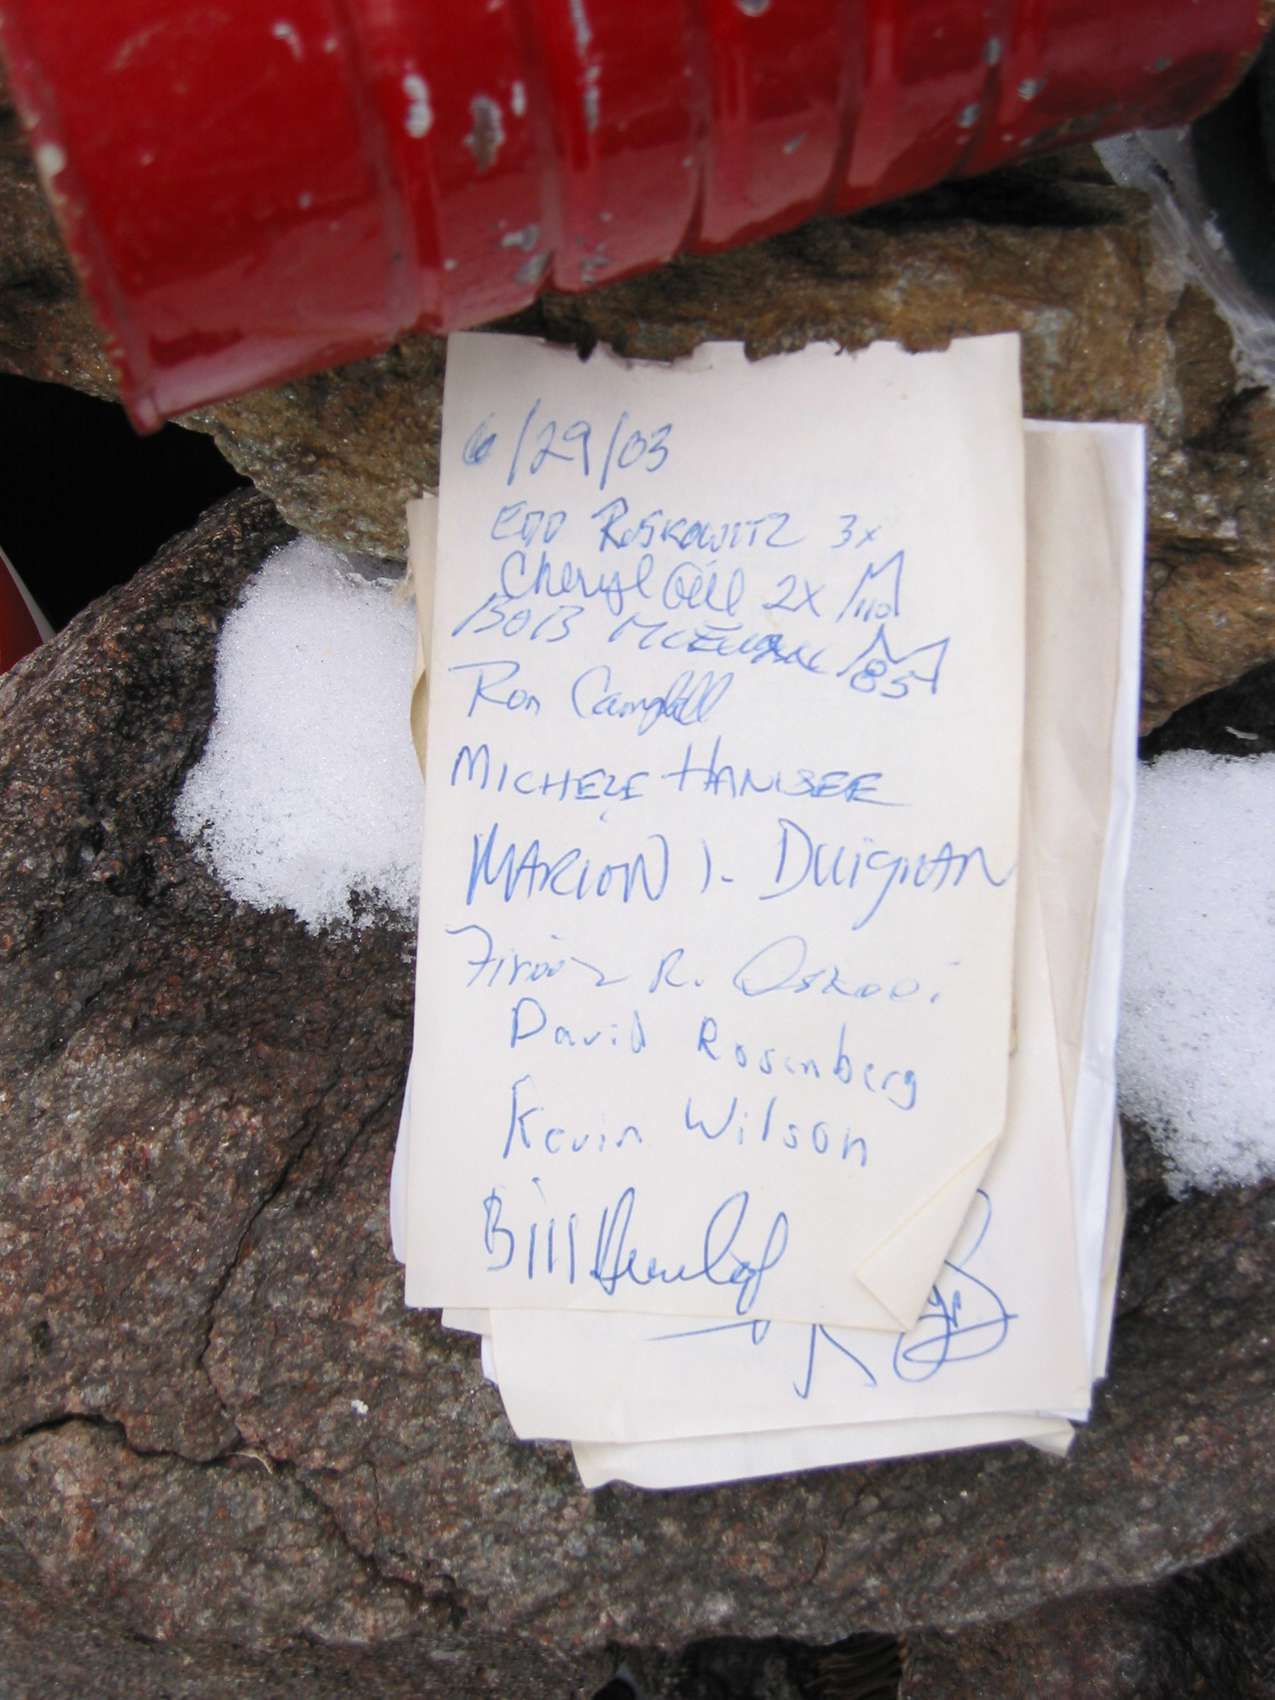 6/29/03
EDD ROSKOWITZ 3x
Cheryl Gill 2X M 110
BOB McEWAN M 85
Ron Campbell
MICHELE HANISEE
MARION I. DUIGNAN
Firooz R. Oskooi
David Rosenberg
Kevin Wilson
Bill Dunlap